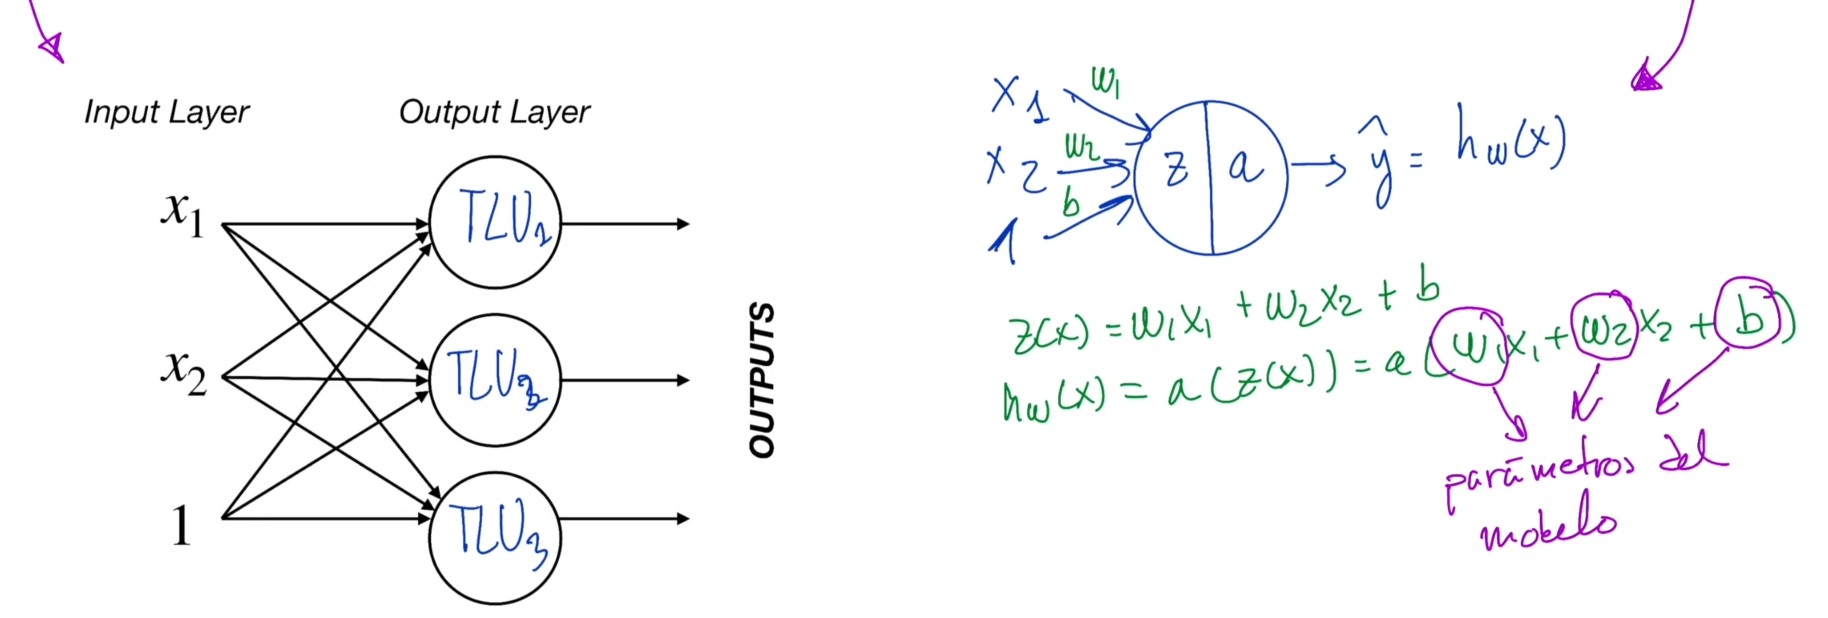 Input Layer
Output Layer
x₁
x₂
1
TLU₁
TLU₂
TLU₃
OUTPUTS
x₁ w₁
x₂ w₂
1 b
z a → ŷ = h_w(x)
z(x) = w₁x₁ + w₂x₂ + b
h_w(x) = a(z(x)) = a(w₁x₁ + w₂x₂ + b)
parámetros del
modelo